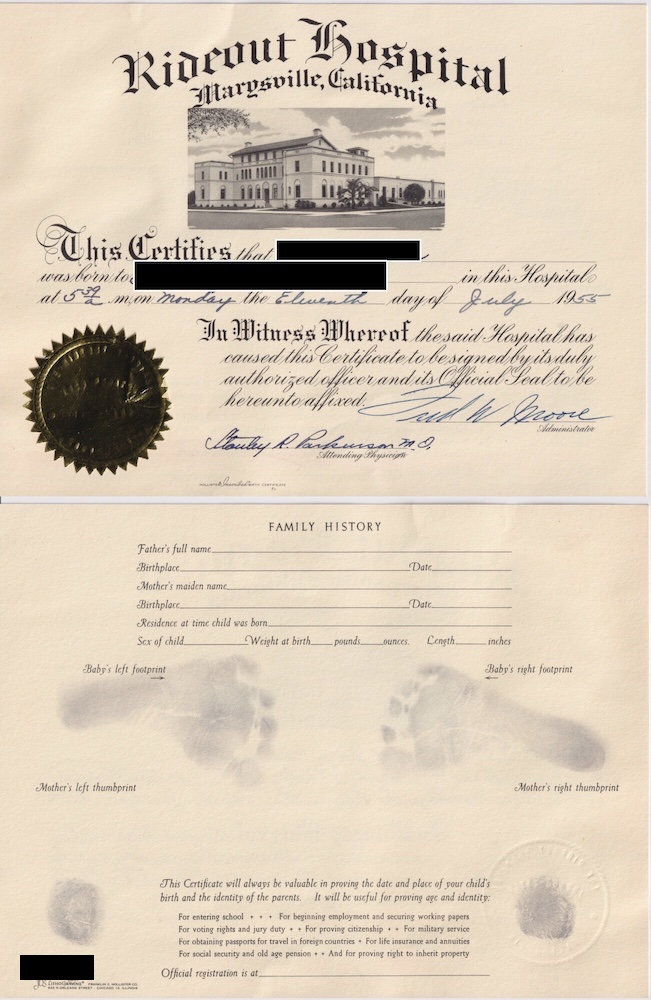 Rideout Hospital
Marysville, California
This Certifies that
was born to in this Hospital
at 5 39/a .m, on Monday the Eleventh day of July 1955
In Witness Whereof the said Hospital has
caused this Certificate to be signed by its duly
authorized officer and its Official Seal to be
hereunto affixed.
Fred W Moore
Administrator
Stanley R. Parkinson M.D.
Attending Physician
HOLLISTER BIRTH CERTIFICATE
FAMILY HISTORY
Father's full name
Birthplace Date
Mother's maiden name
Birthplace Date
Residence at time child was born
Sex of child Weight at birth pounds ounces. Length inches
Baby's left footprint Baby's right footprint
Mother's left thumbprint Mother's right thumbprint
This Certificate will always be valuable in proving the date and place of your child's
birth and the identity of the parents. It will be useful for proving age and identity:
For entering school + + + For beginning employment and securing working papers
For voting rights and jury duty + + For proving citizenship + + For military service
For obtaining passports for travel in foreign countries + For life insurance and annuities
For social security and old age pension + + And for proving right to inherit property
Official registration is at
FRANKLIN C. HOLLISTER CO.
833 N. ORLEANS STREET - CHICAGO 10, ILLINOIS